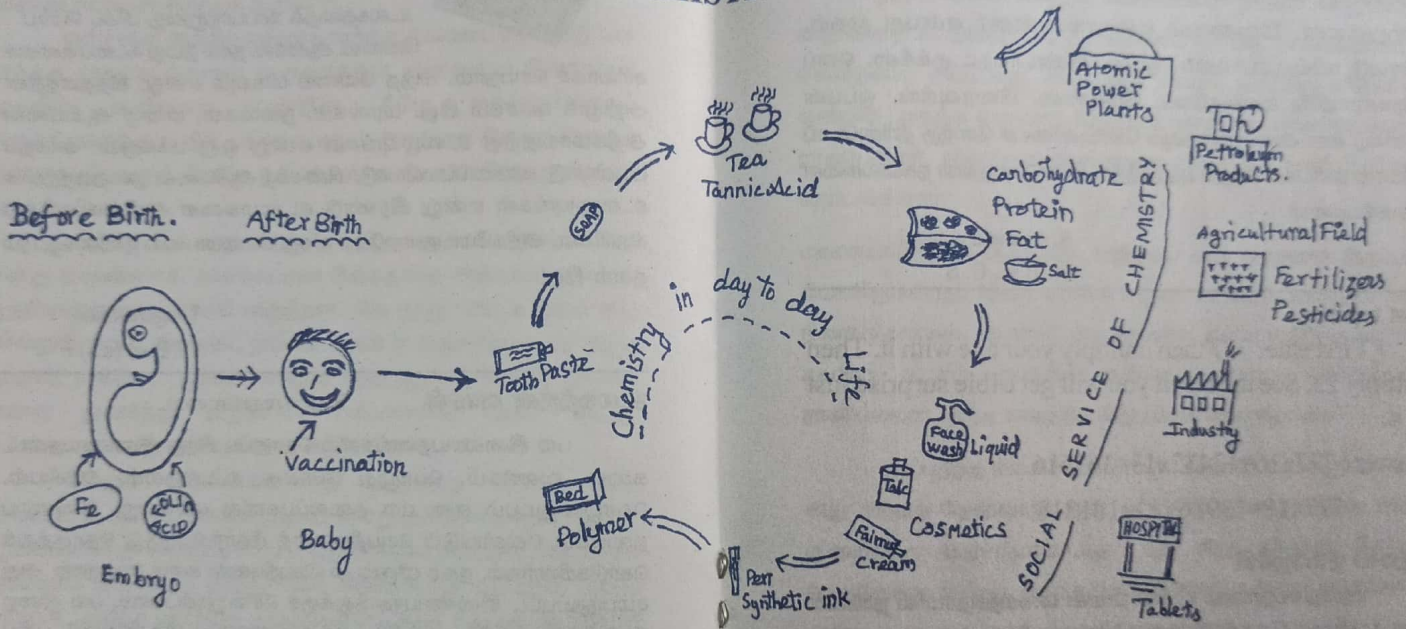 Before Birth.
After Birth
Fe
FOLIC
ACID
Embryo
Vaccination
Baby
Tooth Paste
SOAP
Tea
Tannic Acid
Carbohydrate
Protein
Fat
Salt
Face
wash
Liquid
Talc
Cosmetics
Cream
Pen
Synthetic ink
Bed
Polymer
Chemistry in day to day life
SOCIAL SERVICE OF CHEMISTRY
Atomic
Power
Plants
Petroleum
Products.
Agricultural Field
Fertilizers
Pesticides
Industry
HOSPITAL
Tablets